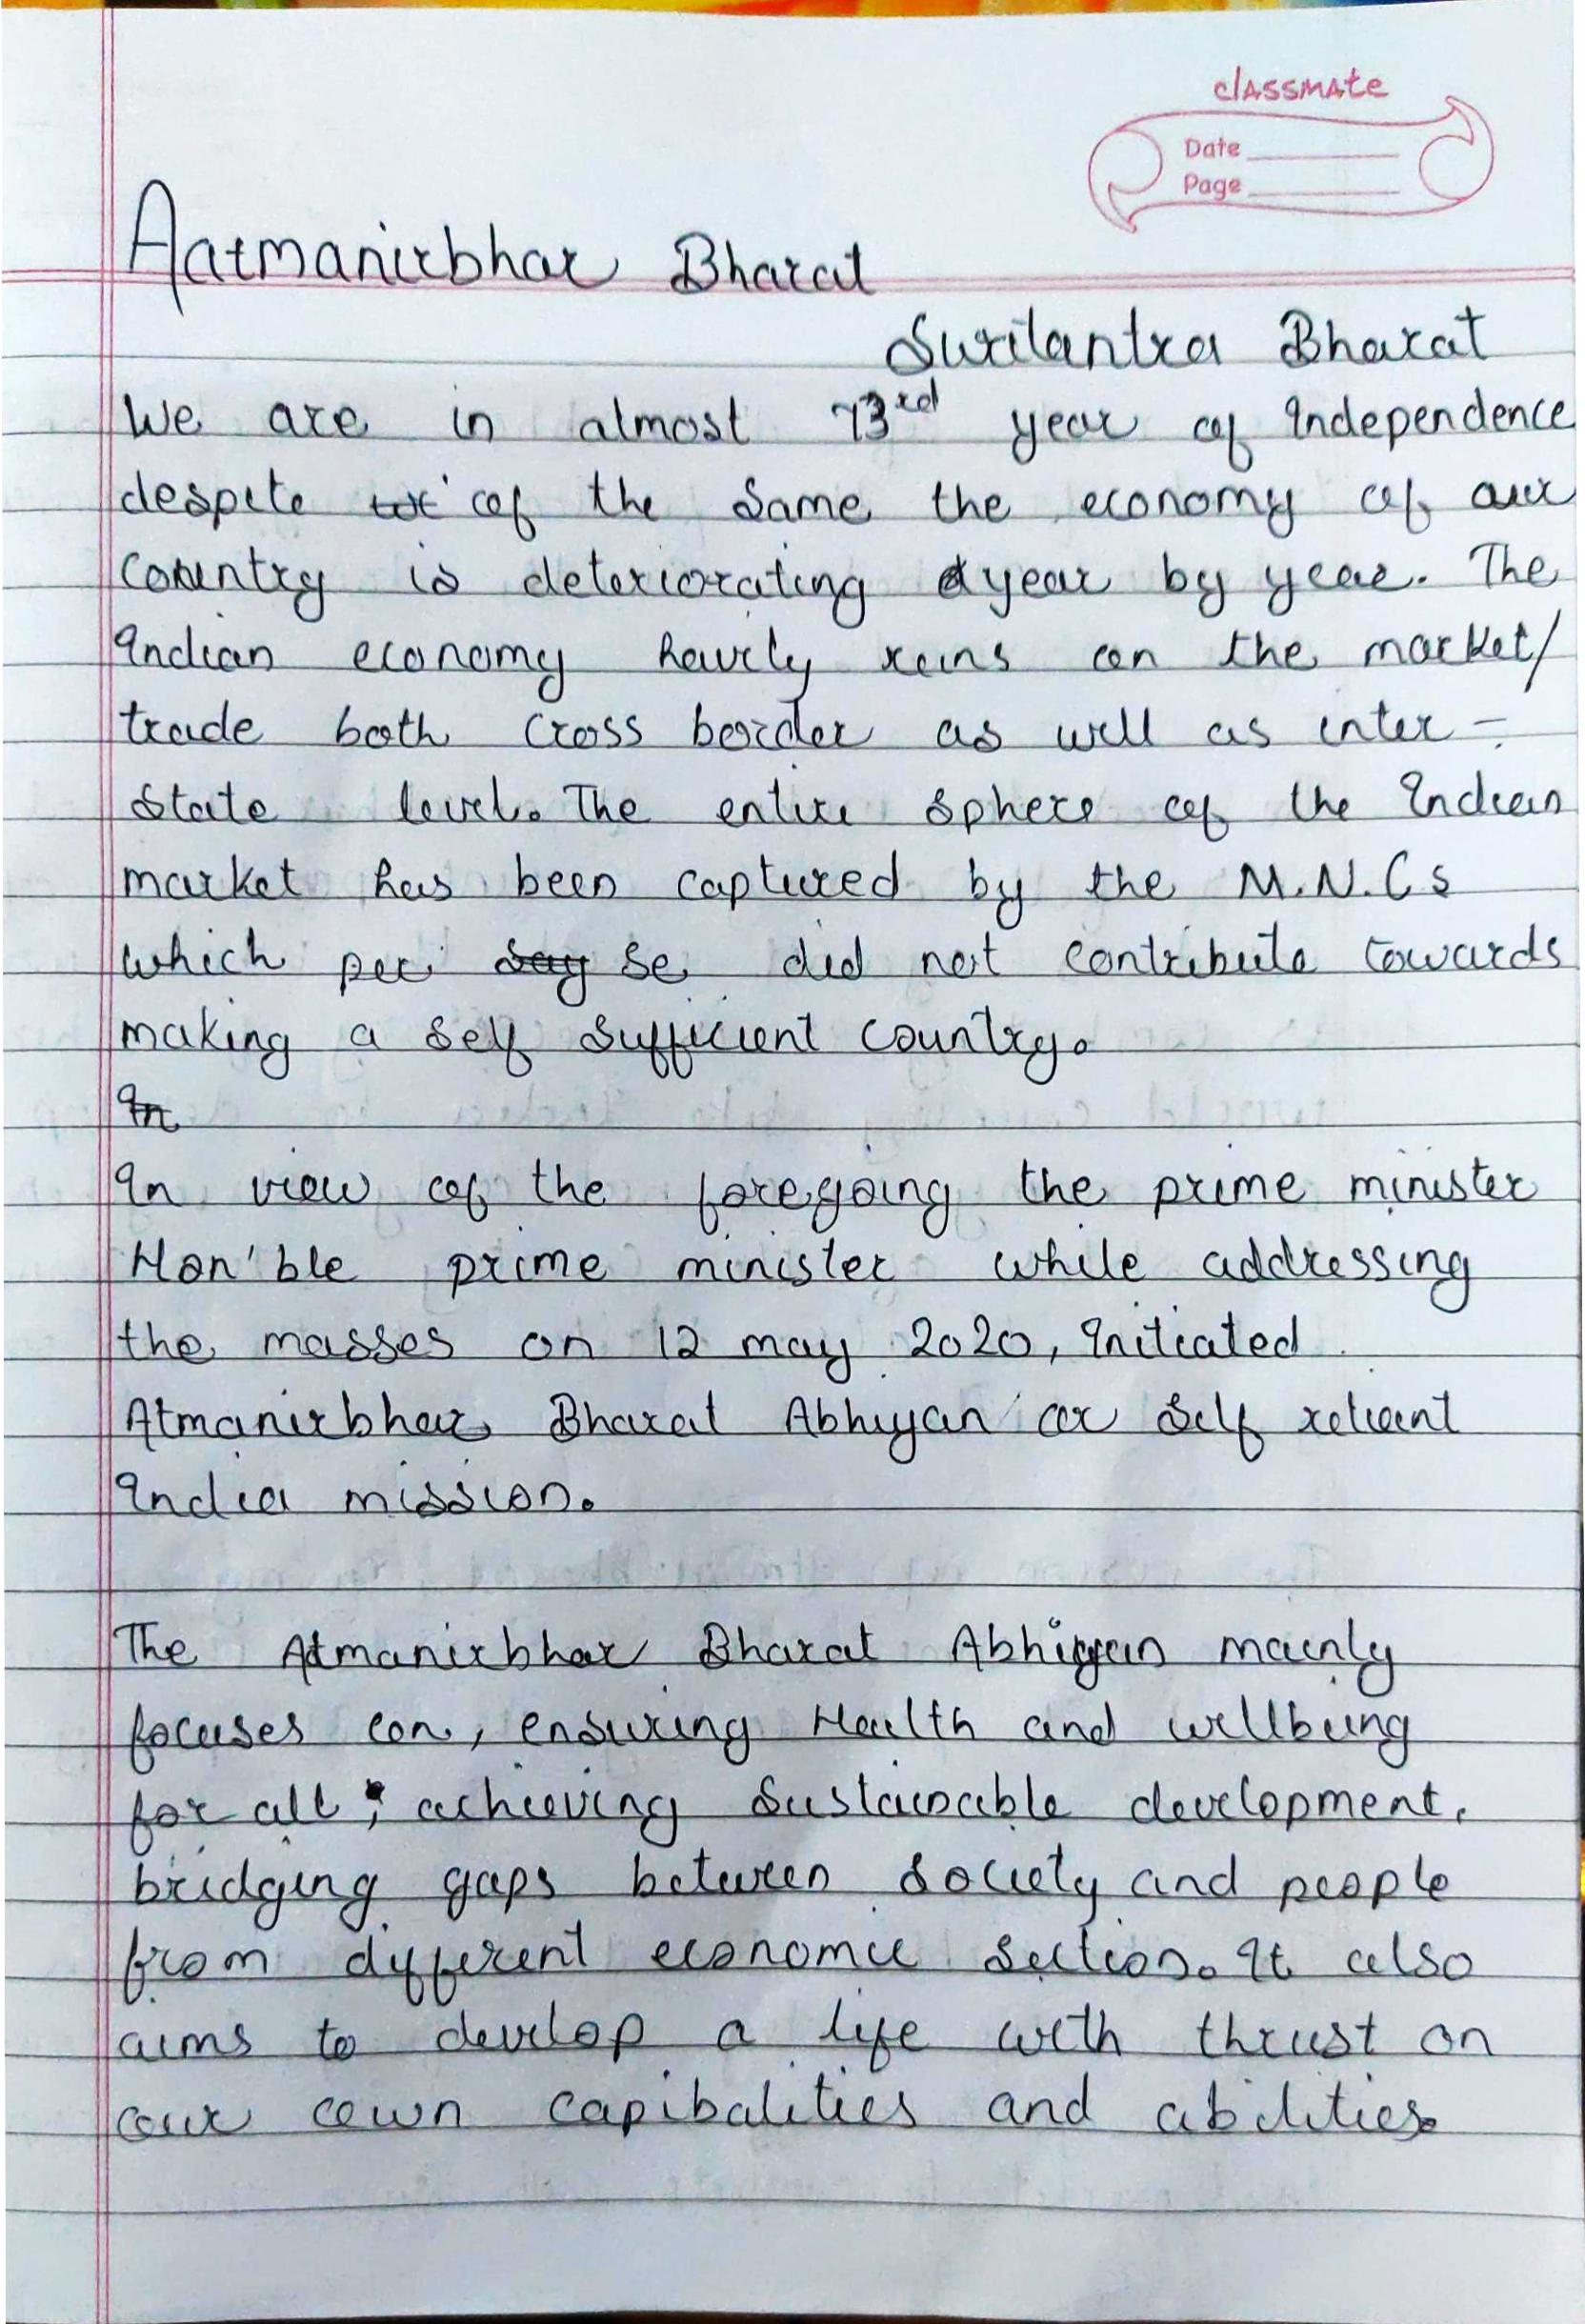 classmate
Date
Page
Aatmanirbhar Bharat
Swatantra Bharat
We are in almost 73rd year of Independence
despite of the same the economy of our
Country is deteriorating year by year. The
Indian economy havely reins on the market/
trade both cross border as well as inter -
state level. The entire sphere of the Indian
market has been captured by the M.N.Cs
which per say se did not contribute towards
making a self sufficient country.
In
In view of the foregoing the prime minister
Hon'ble prime minister while addressing
the masses on 12 may 2020, Initiated
Atmanirbhar Bharat Abhiyan or self reliant
India mission.
The Atmanirbhar Bharat Abhiyan mainly
focuses on, ensuring Health and wellbeing
for all, achieving sustainable development.
bridging gaps between society and people
from different economic section. It also
aims to develop a life with thrust on
our own capibalities and abilities.